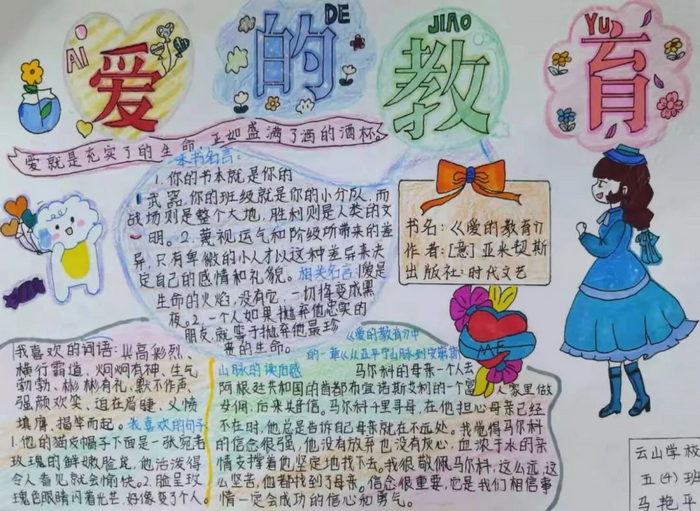 AI
DE
JIAO
YU
爱的教育
爱就是充实了的生命,正如盛满了酒的酒杯。
本书名言:
1.你的书本就是你的
武器,你的班级就是你的小分队,而
战场则是整个大地,胜利则是人类的文
明。2.蔑视运气和阶级所带来的差
异,只有卑微的小人才以这种差异来决
定自己的感情和礼貌。相关名言1.爱是
生命的火焰,没有它,一切将变成黑
夜。2.一个人如果抛弃他忠实的
朋友,就等于抛弃他最珍
贵的生命。
书名:《爱的教育》
作者:[意]亚米契斯
出版社:时代文艺
ME
我喜欢的词语:兴高彩烈、
横行霸道、炯炯有神、生气
勃勃、彬彬有礼、默不作声、
强颜欢笑、迫在眉睫、义愤
填庸、指举而起。我喜欢的句子
1.他的猫皮帽子下面是一张宛若
玫瑰的鲜嫩脸是,他活泼得
令人看见就会愉快。2.脸呈玫
瑰色眼睛闪着光芒,好像变了个人。
《爱的教育》中
的一章《从亚平宁山脉到安第斯
山脉的读后感
马尔科的母亲一个人去
阿根廷共和国的首都布宜诺斯艾利的一个富人家里做
女佣,后来失去信。马尔科千里寻母,在他担心母亲已经
不在时,他总是告诉自己母亲就在不远处。我觉得马尔科
的信念很强,他没有放弃也没有灰心,血浓于水的亲
情支撑着他坚定地找下去。我很敬佩马尔科,这么远,这
么坚苦,他都找到了母亲。信念很重要,它是我们相信事
情一定会成功的信心和勇气。
云山学校
五(4)班
马艳平